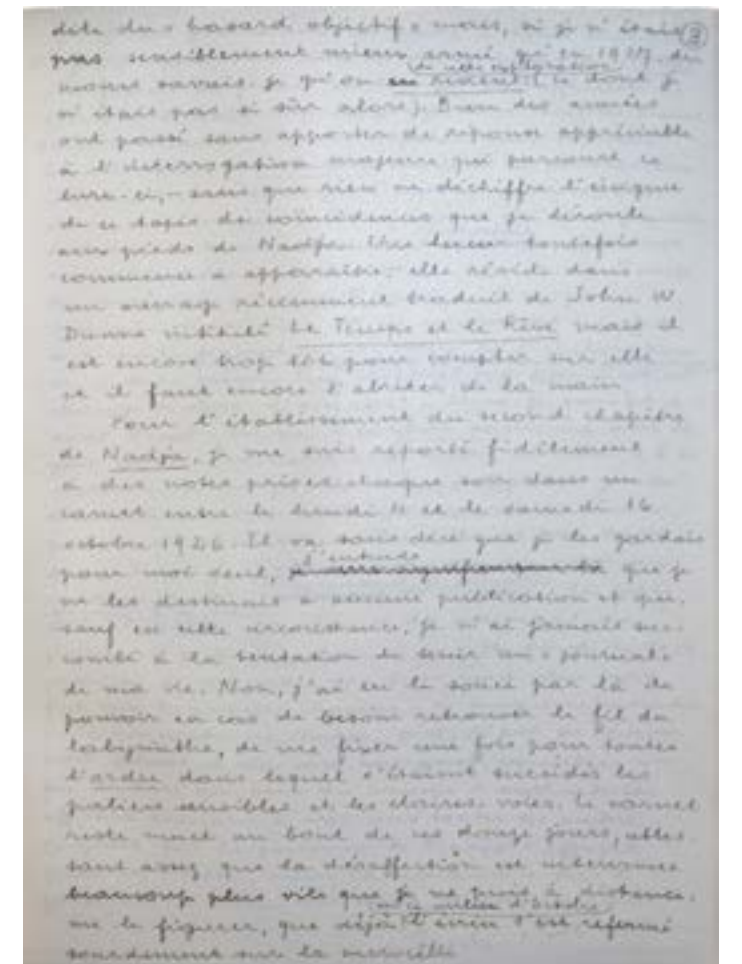 du « hasard objectif » mais, si je n'étais
pas sensiblement mieux armé qu'en 1927, du
de cette exploration
moins savais-je qu'on en revient (ce dont je
n'étais pas si sûr alors). Bien des années
ont passé sans apporter de réponse appréciable
à l'interrogation majeure qui parcourt ce
livre-ci, – sans que rien ne déchiffre l'énigme
de ce tapis de coïncidences que je déroule
aux pieds de Nadja. Une lueur toutefois
commence à apparaître: elle réside dans
un ouvrage récemment traduit de John W.
Dunne intitulé Le Temps et le Rêve mais il
est encore trop tôt pour compter sur elle
et il faut encore l'abriter de la main.
Pour l'établissement du second chapitre
de Nadja, je me suis reporté fidèlement
à des notes prises chaque soir dans un
carnet entre le lundi 4 et le samedi 16
octobre 1926. Il va sans dire que je les gardais
j'entends
pour moi seul, que je
ne les destinais à aucune publication et que,
sauf en cette circonstance, je n'ai jamais suc-
combé à la tentation de tenir un « journal »
de ma vie. Non, j'ai eu le souci par là de
pouvoir en cas de besoin retrouver le fil du
labyrinthe, de me fixer une fois pour toutes
l'ordre dans lequel s'étaient succédés les
paliers sensibles et les claires-voies. Le carnet
reste muet au bout de ces douze jours, attes-
tant assez que la désaffection est intervenue
beaucoup plus vite que je ne puis à distance
milieu d'octobre
me le figurer, que déjà s'est refermé
sourdement sur la merveille.